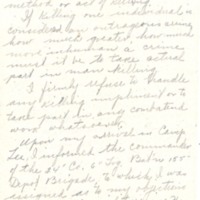 method or act of killing.
If killing one individual is
considered an outrageous crime
how much greater how much
more inhuman a crime
must it be to take actual
part in man killing.
I firmly refuse to handle
any killing implement or to
take part in any combatant
work whatsoever.
Upon my arrival in Camp
Lee, I informed the commander
of the Co. 6" Trg. Batn. 155"
Depot Brigade to which I was
assigned as to my objections